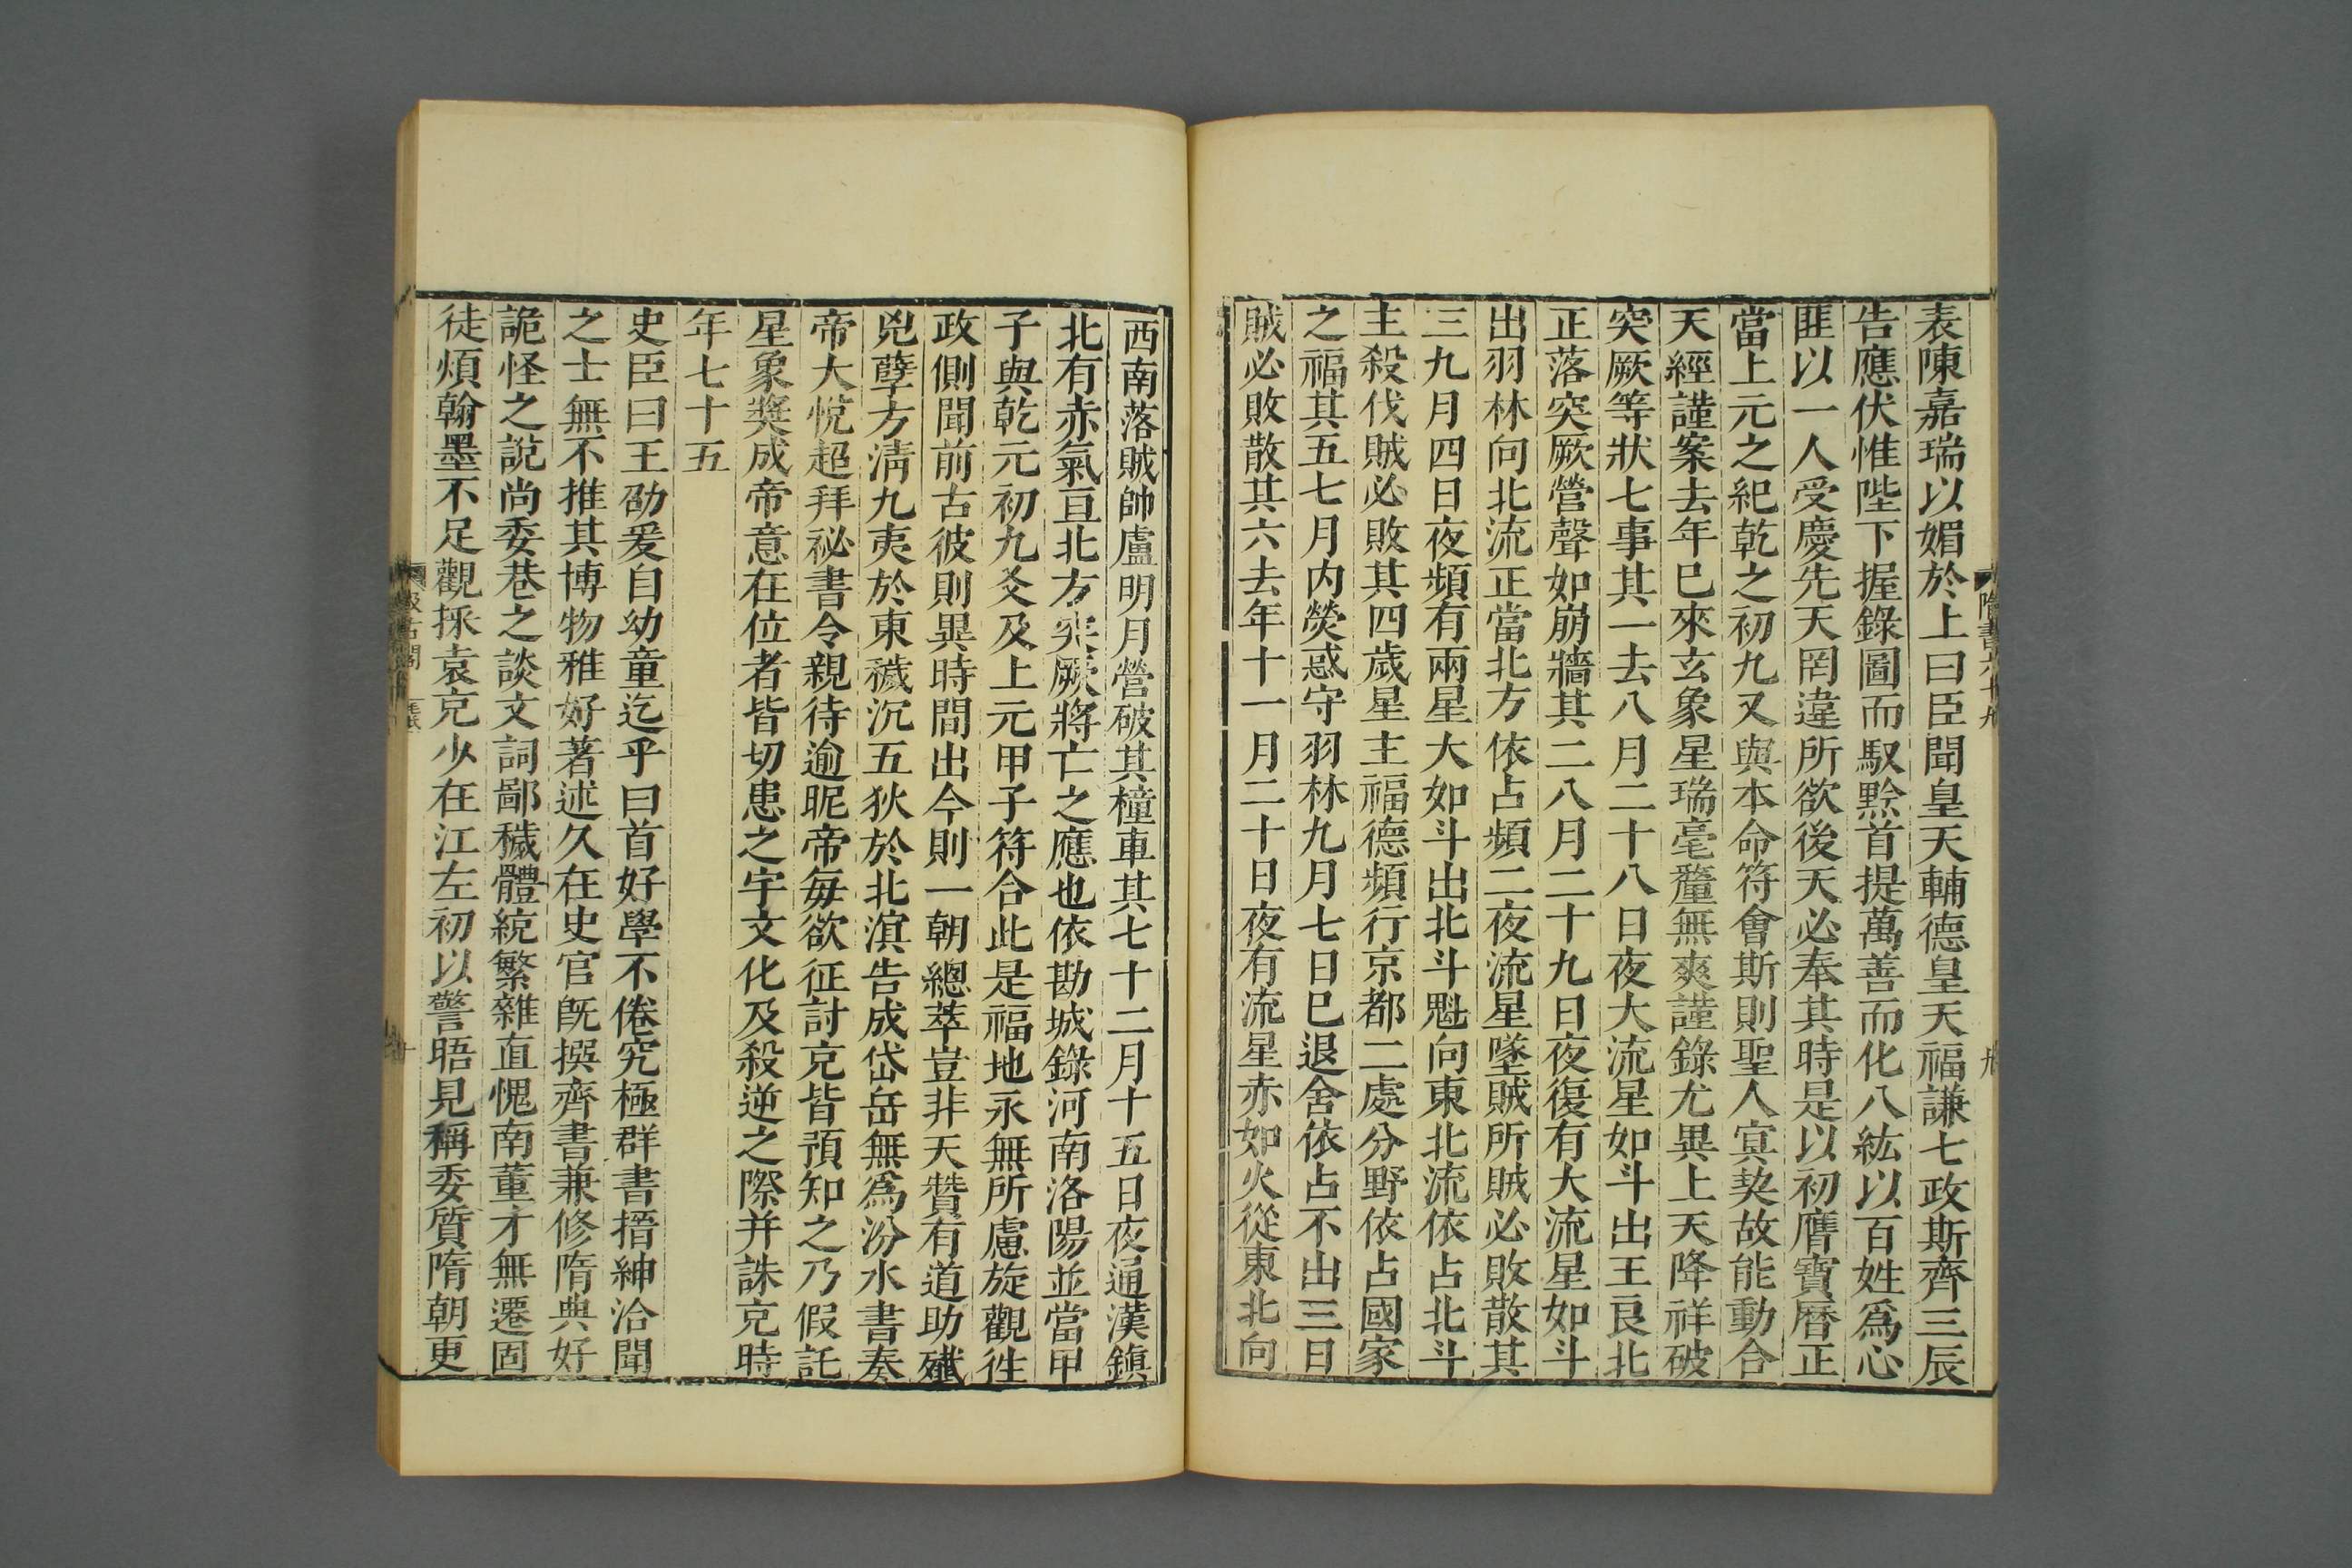 表陳嘉瑞以媚於上曰臣聞皇天輔德皇天福謙七政斯齊三辰
告應伏惟陛下握錄圖而馭黔首提萬善而化八紘以百姓爲心
匪以一人受慶先天罔違所欲後天必奉其時是以初膺寶曆正
當上元之紀乾之初九又與本命符會斯則聖人冥契故能動合
天經謹案去年已來玄象星瑞毫釐無爽謹錄尤異上天降祥破
突厥等狀七事其一去八月二十八日夜大流星如斗出王良北
正落突厥營聲如崩牆其二八月二十九日夜復有大流星如斗
出羽林向北流正當北方依占頻二夜流星墜賊所賊必敗散其
三九月四日夜頻有兩星大如斗出北斗魁向東北流依占北斗
主殺伐賊必敗其四歲星主福德頻行京都二處分野依占國家
之福其五七月內熒惑守羽林九月七日已退舍依占不出三日
賊必敗散其六去年十一月二十日夜有流星赤如火從東北向
西南落賊帥盧明月營破其橦車其七十二月十五日夜通漢鎮
北有赤氣亘北方突厥將亡之應也依勘城錄河南洛陽並當甲
子與乾元初九爻及上元甲子符合此是福地永無所慮旋觀徃
政側聞前古彼則異時間出今則一朝總萃豈非天贊有道助殲
兇孽方清九夷於東穢沉五狄於北溟告成岱岳無爲汾水書奏
帝大悅超拜祕書令親待逾昵帝每欲征討充皆預知之乃假託
星象奬成帝意在位者皆切患之宇文化及殺逆之際并誅充時
年七十五
史臣曰王劭爰自幼童迄乎曰首好學不倦究極群書搢紳洽聞
之士無不推其博物雅好著述久在史官旣撰齊書兼修隋典好
詭怪之說尚委巷之談文詞鄙穢體統繁雜直愧南董才無遷固
徒煩翰墨不足觀採袁充少在江左初以警晤見稱委質隋朝更